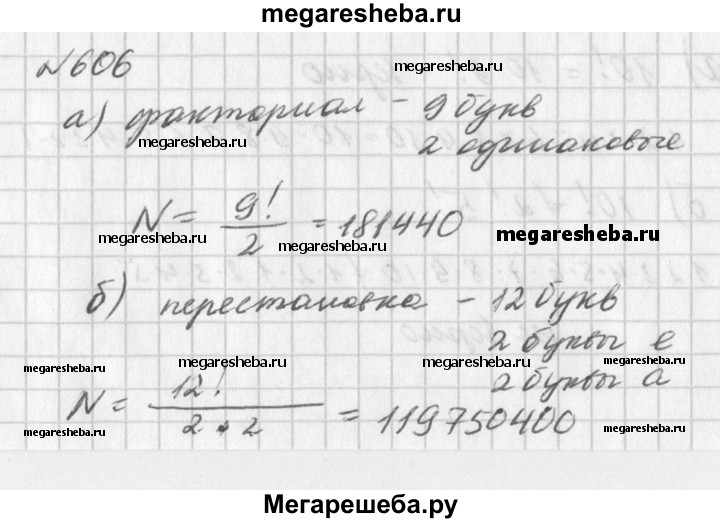 megaresheba.ru
№606
megaresheba.ru
а) факториал - 9 букв
megaresheba.ru
2 одинаковые
N = 9!/2 = 181440
megaresheba.ru
megaresheba.ru
megaresheba.ru
б) перестановка - 12 букв
2 буквы е
megaresheba.ru
megaresheba.ru
megaresheba.ru
megaresheba.ru
2 буквы а
N = 12!/2·2 = 119750400
megaresheba.ru
megaresheba.ru
megaresheba.ru
Мегарешеба.ру